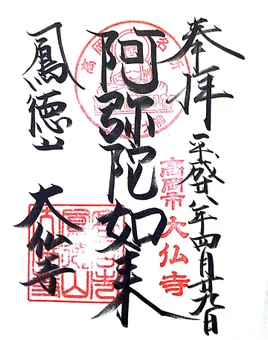 奉拝
平成廿八年四月廿九日
高岡市大仏寺
阿弥陀如来
鳳徳山
大仏寺